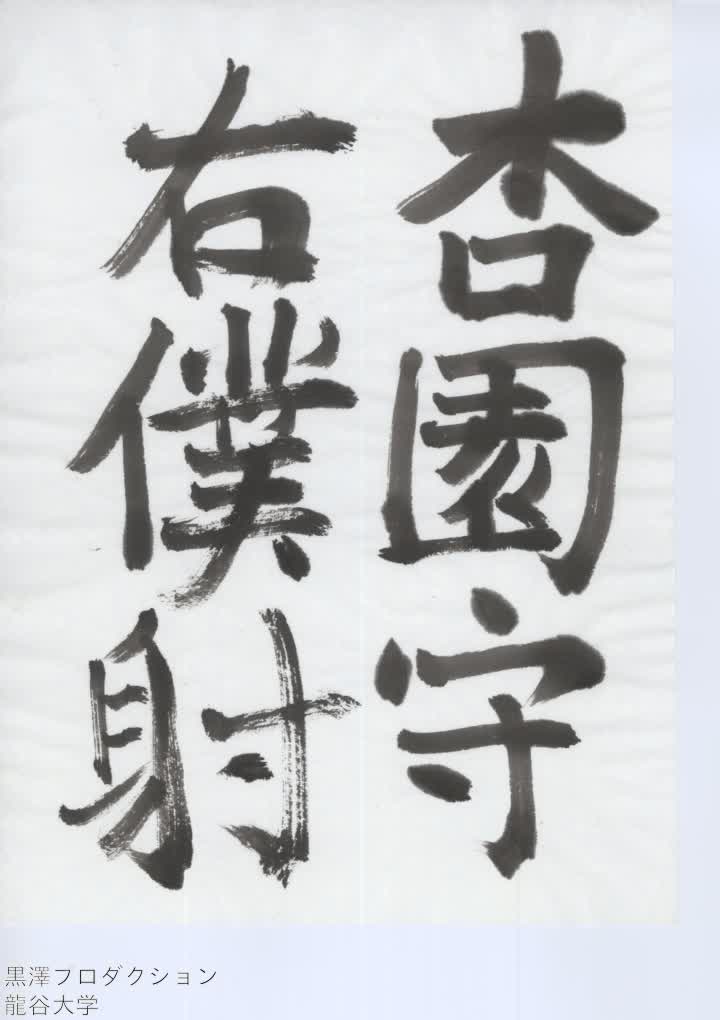 杏園守
右僕射
黒澤プロダクション
龍谷大学